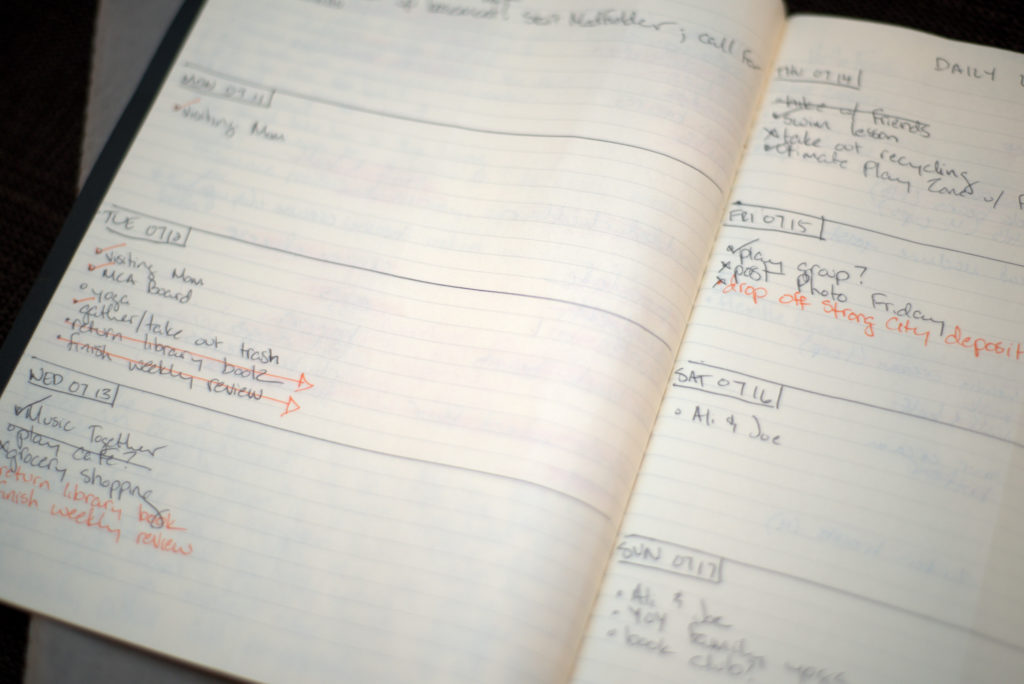 of basement, ; call for
MON 07.11
visiting Mom
TUE 07.12
visiting Mom
MCA Board
yoga
gather/take out trash
return library book
finish weekly review
WED 07.13
Music Together
play cafe?
grocery shopping
return library book
finish weekly review
DAILY
THU 07.14
take of friends
swim lesson
take out recycling
Ultimate Play Zone w/
FRI 07.15
play group?
post Photo Friday
drop off Strong City deposit
SAT 07.16
Ali & Joe
SUN 07.17
Ali & Joe
YOY family
book club?